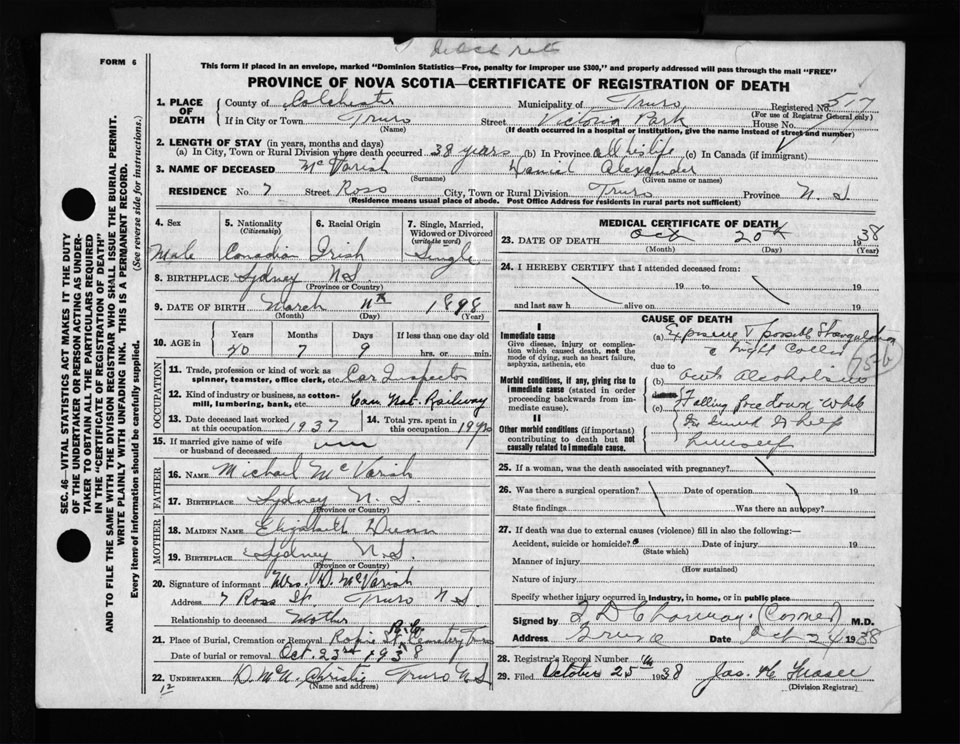 FORM 6
This form if placed in an envelope, marked "Dominion Statistics—Free, penalty for improper use $300," and properly addressed will pass through the mail "FREE"
PROVINCE OF NOVA SCOTIA—CERTIFICATE OF REGISTRATION OF DEATH
1. PLACE OF DEATH
County of Colchester Municipality of Truro Registered No. 517
(For use of Registrar General only)
If in City or Town Truro Street Victoria Park House No.
(Name) (If death occurred in a hospital or institution, give the name instead of street and number)
2. LENGTH OF STAY (in years, months and days)
(a) In City, Town or Rural Division where death occurred 38 years (b) In Province all his life (c) In Canada (if immigrant)
3. NAME OF DECEASED McVarish Daniel Alexander
(Surname) (Given name or names)
RESIDENCE No. 7 Street Ross City, Town or Rural Division Truro Province N.S
(Residence means usual place of abode. Post Office Address for residents in rural parts not sufficient)
4. Sex Male
5. Nationality (Citizenship) Canadian
6. Racial Origin Irish
7. Single, Married, Widowed or Divorced (write the word) Single
8. BIRTHPLACE Sydney N.S
(Province or Country)
9. DATE OF BIRTH March 11th 1898
(Month) (Day) (Year)
10. AGE in Years Months Days If less than one day old
40 7 9 hrs. or min.
OCCUPATION
11. Trade, profession or kind of work as spinner, teamster, office clerk, etc. Car Inspector
12. Kind of industry or business, as cotton-mill, lumbering, bank, etc. Can Nat. Railway
13. Date deceased last worked at this occupation 1937
14. Total yrs. spent in this occupation
15. If married give name of wife or husband of deceased
FATHER
16. NAME Michael McVarish
17. BIRTHPLACE Sydney N.S.
(Province or Country)
MOTHER
18. MAIDEN NAME Elizabeth Dunn
19. BIRTHPLACE Sydney N.S.
(Province or Country)
20. Signature of informant Mrs. D. McVarish
Address 7 Ross St. Truro N.S.
Relationship to deceased Mother
21. Place of Burial, Cremation or Removal Robie St. Cemetery Truro
Date of burial or removal Oct. 23rd 1938
22. UNDERTAKER D. McN. Christie Truro N S
(Name and address)
12
MEDICAL CERTIFICATE OF DEATH
23. DATE OF DEATH Oct 20th 1938
(Month) (Day) (Year)
24. I HEREBY CERTIFY that I attended deceased from:
19 to 19
and last saw h alive on 19
CAUSE OF DEATH
I
Immediate cause
Give disease, injury or complication which caused death, not the mode of dying, such as heart failure, asphyxia, asthenia, etc
Morbid conditions, if any, giving rise to immediate cause (stated in order proceeding backwards from immediate cause).
II
Other morbid conditions (if important) contributing to death but not causally related to immediate cause.
(a) Exposure & possible Strangulation
c tight Collar
due to
(b) acute alcoholism
75b
(c) Falling face down while
himself
25. If a woman, was the death associated with pregnancy?
26. Was there a surgical operation? Date of operation 19
State findings Was there an autopsy?
27. If death was due to external causes (violence) fill in also the following:—
Accident, suicide or homicide? Date of injury 19
(State which)
Manner of injury
(How sustained)
Nature of injury
Specify whether injury occurred in industry, in home, or in public place
Signed by (Coroner) M.D.
Address Truro Date Oct 24 1938
28. Registrar's Record Number
29. Filed October 25th 1938 Jas. H. Fraser
(Division Registrar)
SEC. 46—VITAL STATISTICS ACT MAKES IT THE DUTY OF THE UNDERTAKER OR PERSON ACTING AS UNDERTAKER TO OBTAIN ALL THE PARTICULARS REQUIRED IN THE "CERTIFICATE OF REGISTRATION OF DEATH" AND TO FILE THE SAME WITH THE DIVISION REGISTRAR WHO SHALL ISSUE THE BURIAL PERMIT.
WRITE PLAINLY WITH UNFADING INK. THIS IS A PERMANENT RECORD.
Every item of information should be carefully supplied. (See reverse side for instructions.)